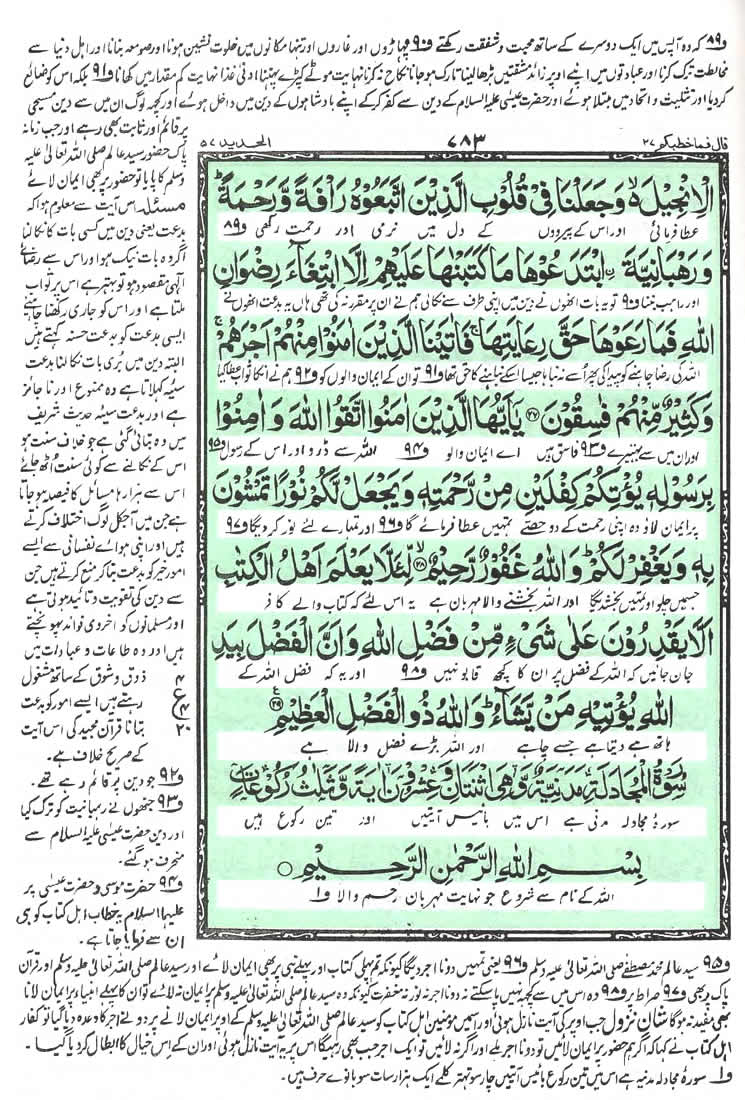 و۸۹ کہ وہ آپس میں ایک دوسرے کے ساتھ محبت و شفقت رکھتے و۹۰ پہاڑوں اور غاروں اور تنہا مکانوں میں خلوت نشین ہونا اور صومعہ بنانا اور اہل دنیا سے
مخالطت ترک کرنا اور عبادتوں میں اپنے اوپر زائد مشقتیں بڑھا لینا تارک ہو جانا نکاح نہ کرنا نہایت موٹے کپڑے پہننا ادنیٰ غذا نہایت کم مقدار میں کھانا و۹۱ بلکہ اس کو ضائع
کر دیا اور تثلیث و اتحاد میں مبتلا ہوئے اور حضرت عیسیٰ علیہ السلام کے دین سے کفر کر کے اپنے بادشاہوں کے دین میں داخل ہوئے اور کچھ لوگ ان میں سے دین مسیحی
قال فما خطبکم ۲۷
۷۸۳
الحدید ۵۷
الْاِنْجِیْلَ ۙ۬ وَ جَعَلْنَا فِیْ قُلُوْبِ الَّذِیْنَ اتَّبَعُوْهُ رَاْفَةً وَّ رَحْمَةً ؕ
عطا فرمائی اور اس کے پیرووں کے دل میں نرمی اور رحمت رکھی و۸۹
وَ رَهْبَانِیَّةَ ِ۟ابْتَدَعُوْهَا مَا كَتَبْنٰهَا عَلَیْهِمْ اِلَّا ابْتِغَآءَ رِضْوَانِ
اور راہب بننا و۹۰ تو یہ بات انھوں نے دین میں اپنی طرف سے نکالی ہم نے ان پر مقرر نہ کی تھی ہاں یہ بدعت انھوں نے
اللّٰهِ فَمَا رَعَوْهَا حَقَّ رِعَایَتِهَا ۚ فَاٰتَیْنَا الَّذِیْنَ اٰمَنُوْا مِنْهُمْ اَجْرَهُمْ ۚ
اللہ کی رضا چاہنے کو پیدا کی پھر اسے نہ نباہا جیسا اسکے نباہنے کا حق تھا و۹۱ تو ان کے ایمان والوں کو و۹۲ ہم نے انکا ثواب عطا کیا
وَ كَثِیْرٌ مِّنْهُمْ فٰسِقُوْنَ ۝۲۷ یٰۤاَیُّهَا الَّذِیْنَ اٰمَنُوا اتَّقُوا اللّٰهَ وَ اٰمِنُوْا
اور ان میں سے بہتیرے و۹۳ فاسق ہیں اے ایمان والو و۹۴ اللہ سے ڈرو اور اس کے رسول و۹۵
بِرَسُوْلِهٖ یُؤْتِكُمْ كِفْلَیْنِ مِنْ رَّحْمَتِهٖ وَ یَجْعَلْ لَّكُمْ نُوْرًا تَمْشُوْنَ
پر ایمان لاؤ وہ اپنی رحمت کے دو حصے تمہیں عطا فرمائے گا و۹۶ اور تمہارے لئے نور کر دیگا و۹۷
بِهٖ وَ یَغْفِرْ لَكُمْ ؕ وَ اللّٰهُ غَفُوْرٌ رَّحِیْمٌ ۝۲۸ لِّئَلَّا یَعْلَمَ اَهْلُ الْكِتٰبِ
جس میں چلو اور تمہیں بخش دیگا اور اللہ بخشنے والا مہربان ہے یہ اس لئے کہ کتاب والے کافر
اَلَّا یَقْدِرُوْنَ عَلٰى شَیْءٍ مِّنْ فَضْلِ اللّٰهِ وَ اَنَّ الْفَضْلَ بِیَدِ
جان جائیں کہ اللہ کے فضل پر ان کا کچھ قابو نہیں و۹۸ اور یہ کہ فضل اللہ کے
اللّٰهِ یُؤْتِیْهِ مَنْ یَّشَآءُ ؕ وَ اللّٰهُ ذُو الْفَضْلِ الْعَظِیْمِ ۝۲۹
ہاتھ ہے دیتا ہے جسے چاہے اور اللہ بڑے فضل والا ہے
سُوْرَةُ الْمُجَادَلَةِ مَدَنِیَّةٌ وَّهِیَ اثْنَتَانِ وَعِشْرُوْنَ اٰیَةً وَّثَلٰثُ رُكُوْعَاتٍ
سورۂ مجادلہ مدنی ہے اس میں بائیس آیتیں اور تین رکوع ہیں
بِسْمِ اللّٰهِ الرَّحْمٰنِ الرَّحِیْمِ
اللہ کے نام سے شروع جو نہایت مہربان رحم والا و۱
پر قائم اور ثابت بھی رہے اور جب زمانہ
پاک حضور سید عالم صلی اللہ تعالیٰ علیہ
وسلم کا پایا تو حضور پر بھی ایمان لائے
مسئلہ اس آیت سے معلوم ہوا کہ
بدعت یعنی دین میں کسی بات کا نکالنا
اگر وہ بات نیک ہو اور اس سے رضائے
الٰہی مقصود ہو تو بہتر ہے اس پر ثواب
ملتا ہے اور اس کو جاری رکھنا چاہئے
ایسی بدعت کو بدعت حسنہ کہتے ہیں
البتہ دین میں بُری بات نکالنا بدعت
سیّئہ کہلاتا ہے وہ ممنوع اور ناجائز
ہے اور بدعت سیئہ حدیث شریف
میں وہ بتائی گئی ہے جو خلاف سنت ہو
اس کے نکالنے سے کوئی سنت اُٹھ جائے
اس سے ہزارہا مسائل کا فیصلہ ہو جاتا
ہے جن میں آجکل لوگ اختلاف کرتے
ہیں اور اپنی ہوائے نفسانی سے ایسے
امور خیر کو بدعت بتا کر منع کرتے ہیں جن
سے دین کی تقویت و تائید ہوتی ہے
اور مسلمانوں کو اخروی فوائد پہونچتے
ہیں اور وہ طاعات و عبادات میں
ذوق و شوق کے ساتھ مشغول
رہتے ہیں ایسے امور کو بدعت
بتانا قرآن مجید کی اس آیت
کے صریح خلاف ہے۔
۴
ع
۴
۲۰
و۹۲ جو دین پر قائم رہے تھے۔
و۹۳ جنھوں نے رہبانیت کو ترک کیا
اور دین حضرت عیسیٰ علیہ السلام سے
منحرف ہو گئے۔
و۹۴ حضرت موسیٰ و حضرت عیسیٰ پر
علیہما السلام یہ خطاب اہل کتاب کو ہی
ان سے فرمایا جاتا ہے۔
و۹۵ سید عالم محمد مصطفےٰ صلی اللہ تعالیٰ علیہ وسلم و۹۶ یعنی تمہیں دونا اجر دیگا کیونکہ تم پہلی کتاب اور پہلے نبی پر بھی ایمان لائے اور سید عالم صلی اللہ تعالیٰ علیہ وسلم اور قرآن
پاک پر بھی و۹۷ صراط پر و۹۸ وہ اس میں سے کچھ نہیں پا سکتے نہ دونا اجر نہ نور نہ مغفرت کیونکہ وہ سید عالم صلی اللہ تعالیٰ علیہ وسلم پر ایمان نہ لائے تو ان کا پہلے انبیاء پر ایمان لانا
بھی مفید نہ ہو گا شان نزول جب اوپر کی آیت نازل ہوئی اور اسمیں مومنین اہل کتاب کو سید عالم صلی اللہ تعالیٰ علیہ وسلم کے اوپر ایمان لانے پر دونے اجر کا وعدہ دیا گیا تو کفار
اہل کتاب نے کہا کہ اگر ہم حضور پر ایمان لائیں تو دونا اجر ملے اور اگر نہ لائیں تو ایک اجر جب بھی رہیگا اس پر یہ آیت نازل ہوئی اور ان کے اس خیال کا ابطال کر دیا گیا۔
و۱ سورۂ مجادلہ مدنیہ ہے اس میں تین رکوع بائیس آیتیں چار سو تہتر کلمے ایک ہزار سات سو بانوے حرف ہیں۔